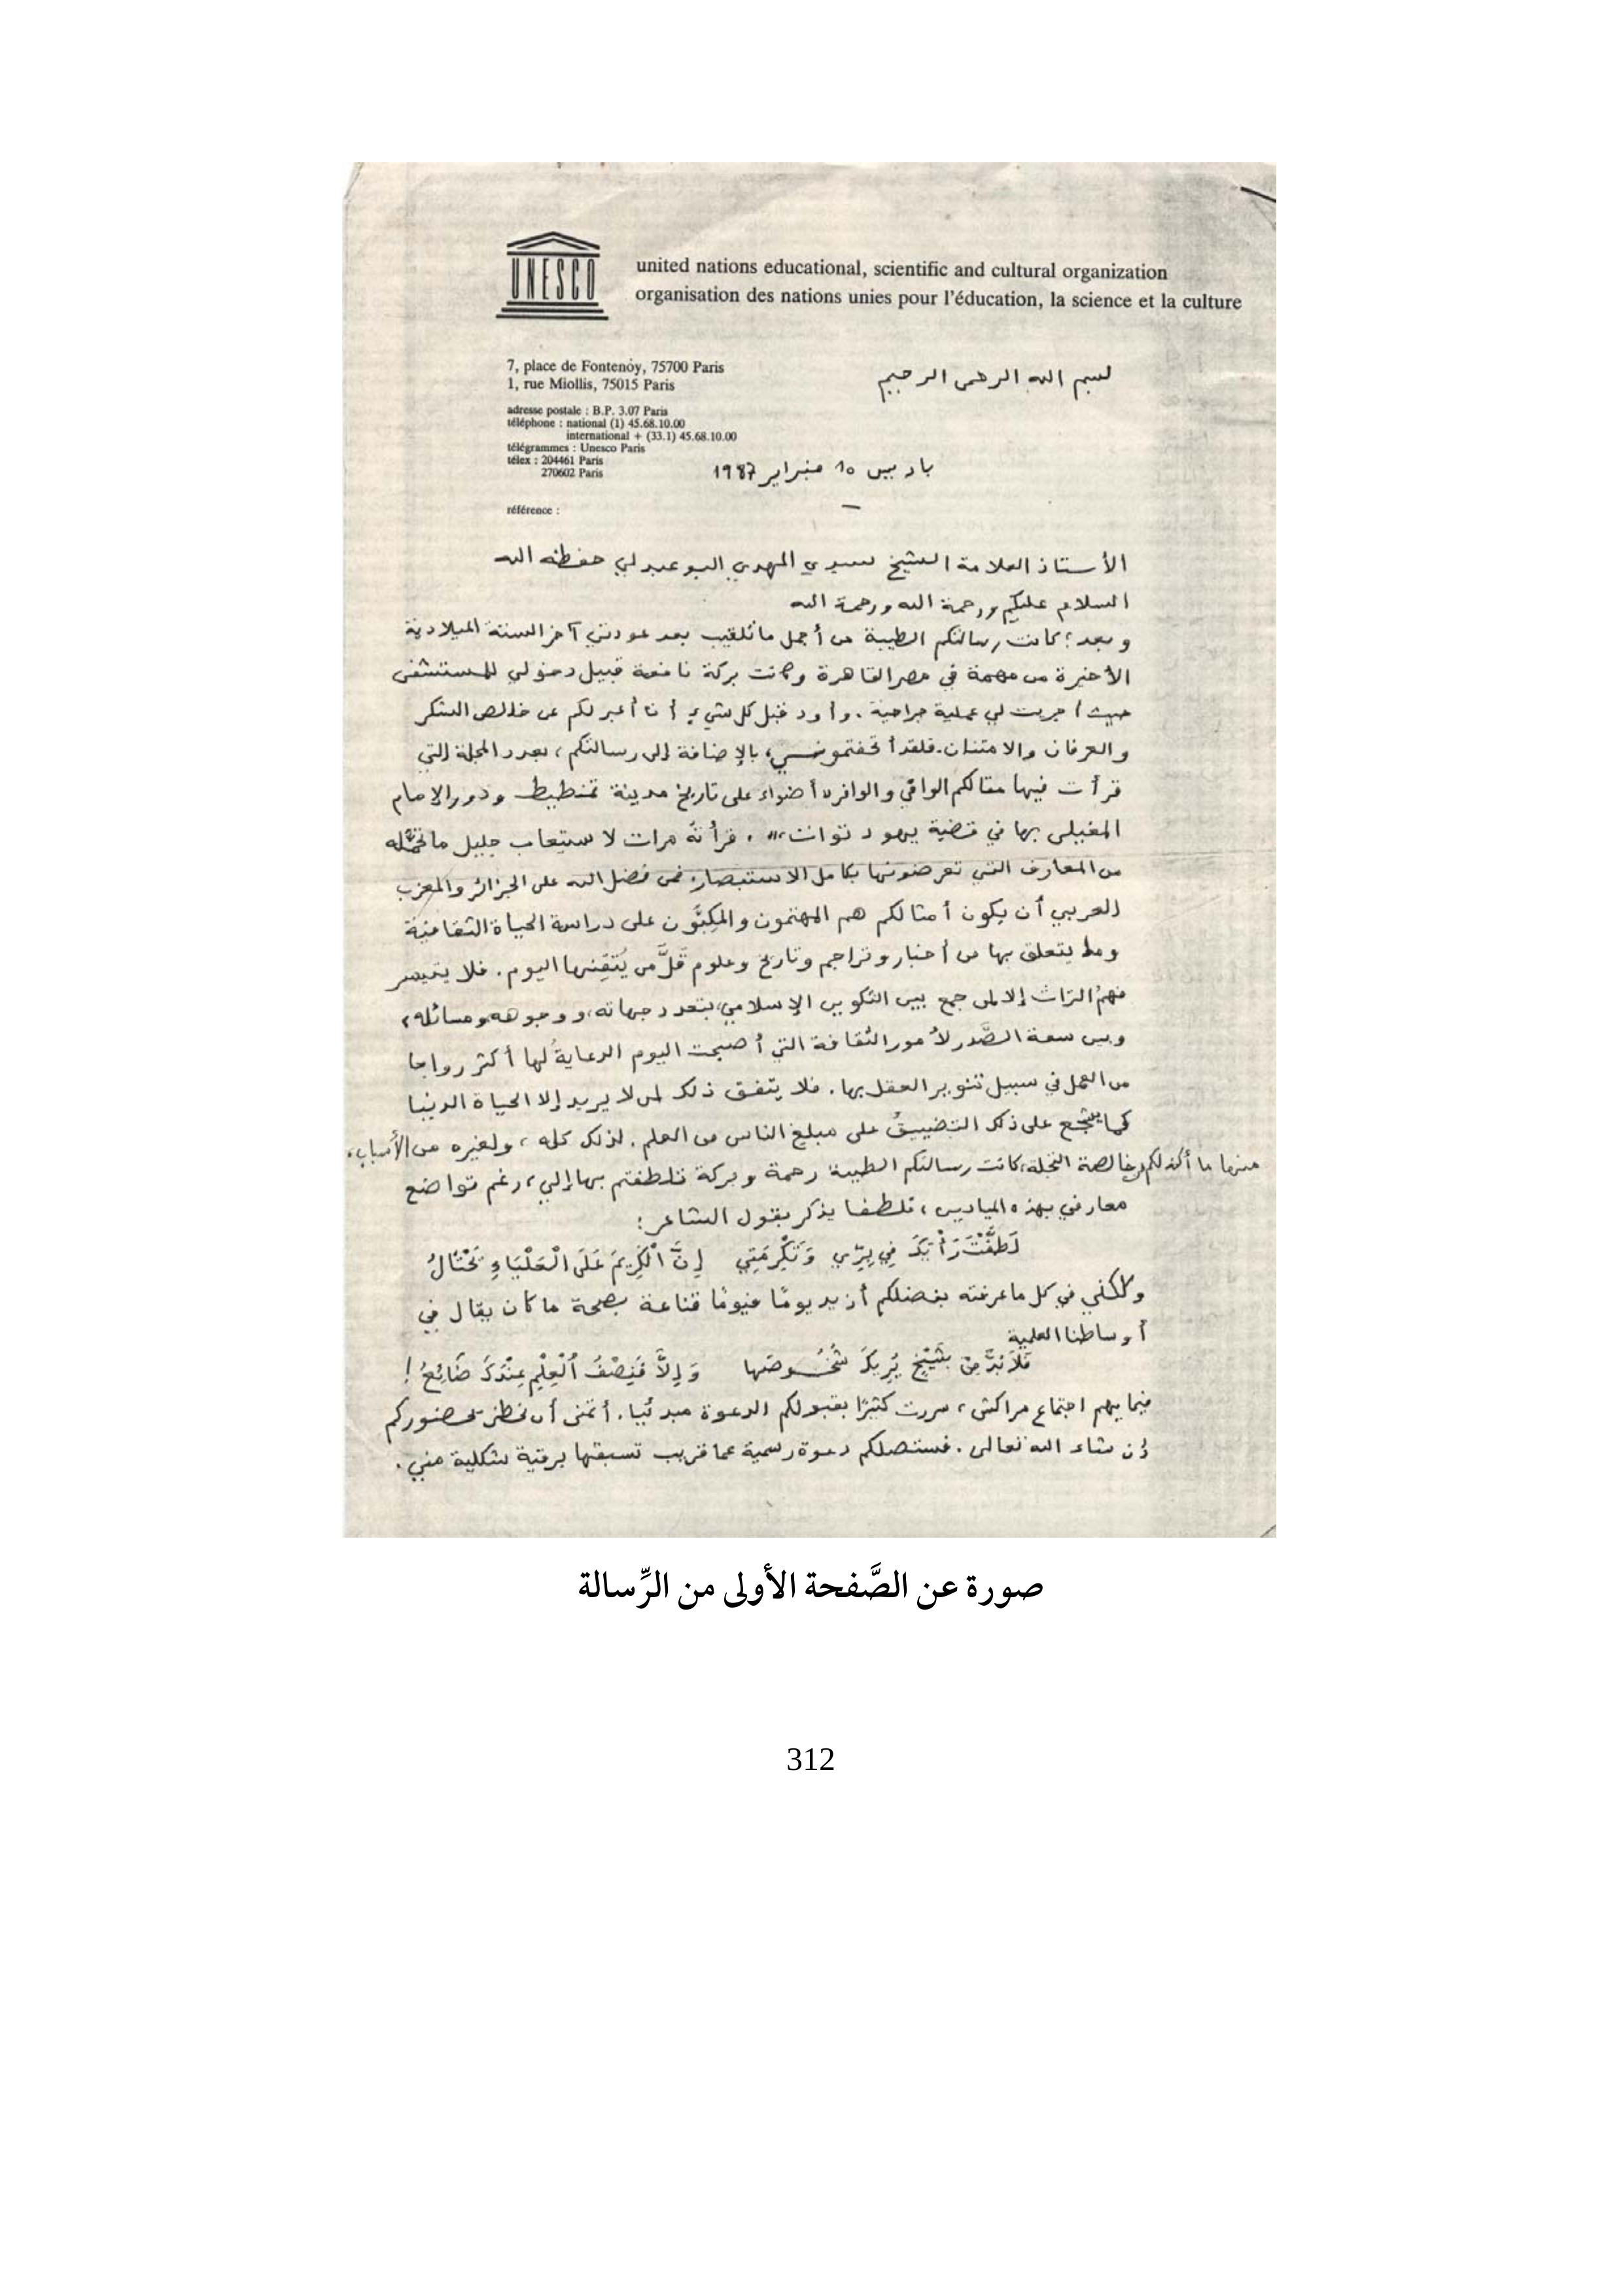 UNESCO
united nations educational, scientific and cultural organization
organisation des nations unies pour l'éducation, la science et la culture
7, place de Fontenoy, 75700 Paris
1, rue Miollis, 75015 Paris
بسم الله الرحمن الرحيم
adresse postale : B.P. 3.07 Paris
téléphone : national (1) 45.68.10.00
international + (33.1) 45.68.10.00
télégrammes : Unesco Paris
télex : 204461 Paris
270602 Paris
باريس 10 فبراير 1987
référence :
الأستاذ العلامة الشيخ سيدي المهدي البوعبدلي حفظه الله
السلام عليكم ورحمة الله ورحمة الله
وبعد؛ كانت رسالتكم الطيبة من أجمل ما تلقيت بعد عودتي آخر السنة الميلادية
الأخيرة من مهمة في مصر القاهرة وكانت بركة نافعة قبيل دخولي للمستشفى
حيث أجريت لي عملية جراحية. وأود قبل كل شيء أن أعبر لكم عن خالص الشكر
والعرفان والامتنان. فلقد أتحفتموني، بالإضافة إلى رسالتكم، بعدد المجلة التي
قرأت فيها مقالكم الوافي والوافر "أضواء على تاريخ مدينة تمنطيط ودور الإمام
المغيلي بها في قضية يهود توات". قرأته مرات لاستيعاب جليل ما تحمله
من المعارف التي تعرضونها بكامل الاستبصار. فمن فضل الله على الجزائر والمغرب
العربي أن يكون أمثالكم هم المهتمون والمكبّون على دراسة الحياة الثقافية
وما يتعلق بها من أخبار وتراجم وتاريخ وعلوم قلّ من يُتقنها اليوم. فلا يتيسر
فهمُ التراث إلا لمن جمع بين التكوين الإسلامي، بتعدد جهاته، ووجوهه ومسائله،
وبين سعة الصَّدر لأمور الثقافة التي أصبحت اليوم الدعايةُ لها أكثر رواجا
من العمل في سبيل تنوير العقل بها. فلا يتفق ذلك لمن لا يريد إلا الحياة الدنيا
كما يشجع على ذلك التضييقُ على مبلغ الناس من العلم. لذلك كله، ولغيره من الأسباب،
منها ما أكنه لكم من خالصة التجلة، كانت رسالتكم الطيبة رحمة وبركة تلطفتم بها إلي، رغم تواضع
معارفي بهذه الميادين، تلطفا يذكر بقول الشاعر:
لَطَّفْتَ رَأْيَكَ فِي بِرِّي وَتَكْرِمَتِي إِنَّ الْكَرِيمَ عَلَى الْعَلْيَاءِ يَحْتَالُ
ولكنني في كل ما عرفته بفضلكم أزيد يومًا فيومًا قناعة بصحة ما كان يقال في
أوساطنا العلمية
فَلَا بُدَّ مِنْ شَيْخٍ يُرِيكَ شُخُوصَهَا وَإِلَّا فَنِصْفُ الْعِلْمِ عِنْدَكَ ضَائِعُ!
فيما يهم اجتماع مراكش، سررت كثيرًا بقبولكم الدعوة مبدئيا. أتمنى أن نحظى بحضوركم
إن شاء الله تعالى. فستصلكم دعوة رسمية عما قريب تسبقها برقية شكلية مني.
صورة عن الصَّفحة الأولى من الرِّسالة
312